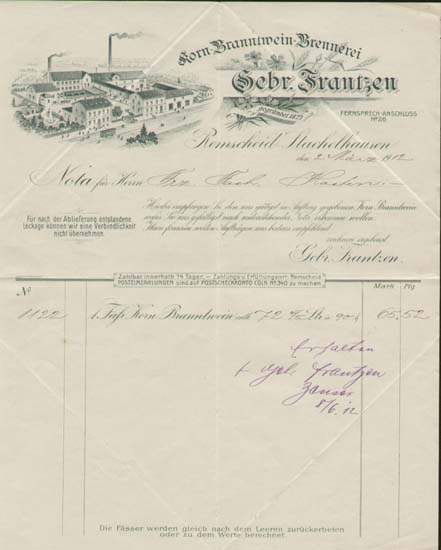 Korn-Branntwein-Brennerei
Gebr. Frantzen
gegründet 1827
FERNSPRECH-ANSCHLUSS
№ 26
Remscheid Stachelhausen
den 2. März 1912
Nota für Herrn Frz.
Für nach der Ablieferung entstandene
Leckage können wir eine Verbindlichkeit
nicht übernehmen.
Hierbei empfangen Sie den uns gütigst in Auftrag gegebenen Korn-Branntwein
wofür Sie uns gefälligst nach untenstehender Nota erkennen wollen.
Ihnen ferneren Aufträgen uns bestens empfehlend
zeichnen ergebenst
Gebr. Frantzen.
Zahlbar innerhalb 14 Tagen. – Zahlungs- u. Erfüllungsort: Remscheid
POSTEINZAHLUNGEN sind auf POSTSCHECKKONTO CÖLN № 340 zu machen.
№ Mark Pfg
1122 1 Faß Korn Branntwein 72 90 65.52
Erhalten
Gebr. Frantzen
8/6.12
Die Fässer werden gleich nach dem Leeren zurückerbeten
oder zu dem Werte berechnet.